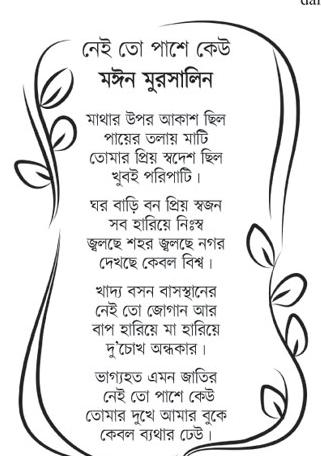 dar
নেই তো পাশে কেউ
মঈন মুরসালিন
মাথার উপর আকাশ ছিল
পায়ের তলায় মাটি
তোমার প্রিয় স্বদেশ ছিল
খুবই পরিপাটি।
ঘর বাড়ি বন প্রিয় স্বজন
সব হারিয়ে নিঃস্ব
জ্বলছে শহর জ্বলছে নগর
দেখছে কেবল বিশ্ব।
খাদ্য বসন বাসস্থানের
নেই তো জোগান আর
বাপ হারিয়ে মা হারিয়ে
দু'চোখ অন্ধকার।
ভাগ্যহত এমন জাতির
নেই তো পাশে কেউ
তোমার দুখে আমার বুকে
কেবল ব্যথার ঢেউ।